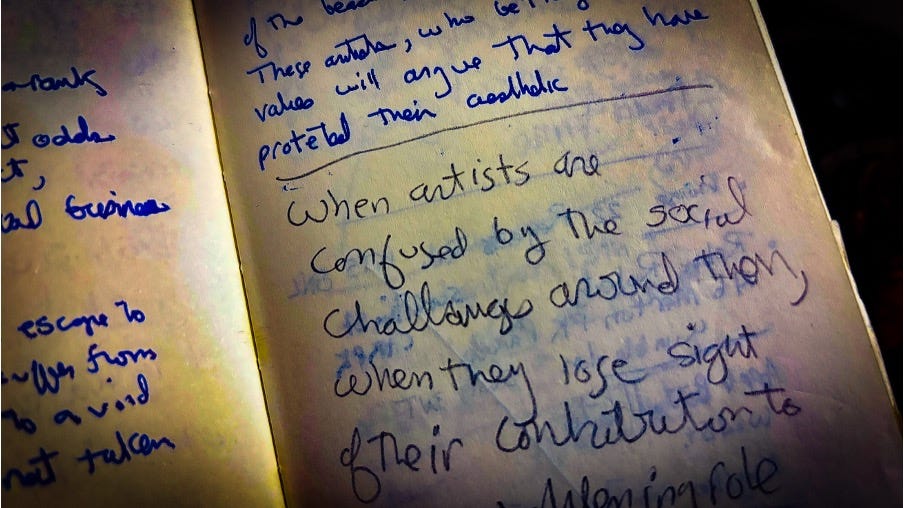 escape to
suffer from
to avoid
not taken
of the
These artists, who
values will argue that they have
their aesthetic
When artists are
confused by the social
challenges around them,
when they lose sight
of their contribution to
role